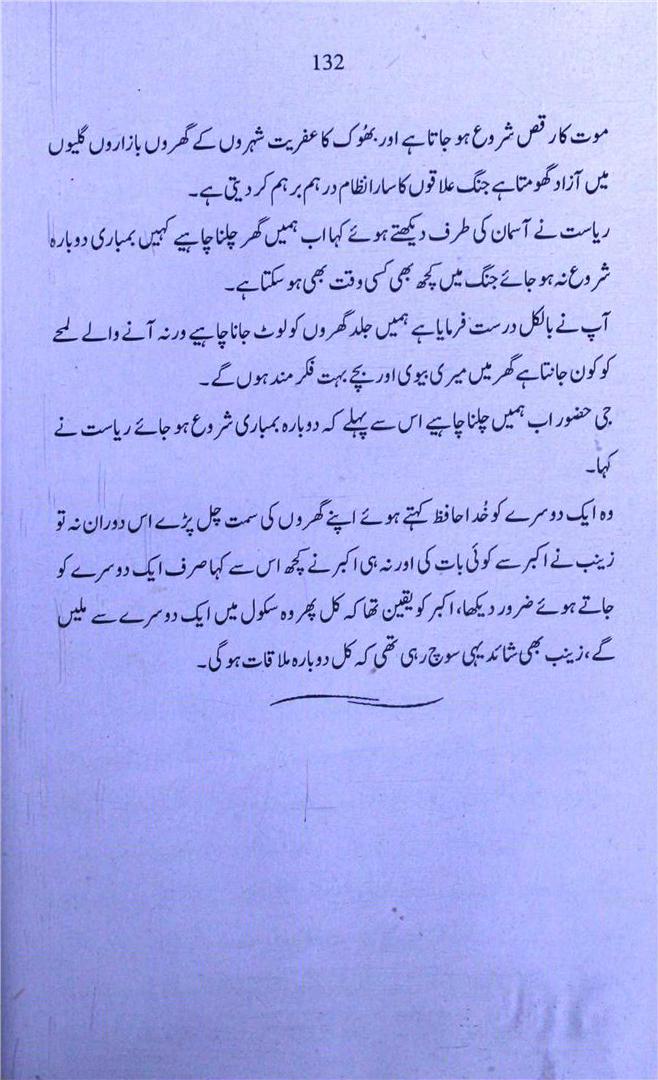 132
موت کا رقص شروع ہو جاتا ہے اور بھُوک کا عفریت شہروں کے گھروں بازاروں گلیوں
میں آزاد گھومتا ہے جنگ علاقوں کا سارا نظام درہم برہم کر دیتی ہے۔
ریاست نے آسمان کی طرف دیکھتے ہوئے کہا اب ہمیں گھر چلنا چاہیے کہیں بمباری دوبارہ
شروع نہ ہو جائے جنگ میں کچھ بھی کسی وقت بھی ہو سکتا ہے۔
آپ نے بالکل درست فرمایا ہے ہمیں جلد گھروں کو لوٹ جانا چاہیے ورنہ آنے والے لمحے
کو کون جانتا ہے گھر میں میری بیوی اور بچے بہت فکر مند ہوں گے۔
جی حضور اب ہمیں چلنا چاہیے اس سے پہلے کہ دوبارہ بمباری شروع ہو جائے ریاست نے
کہا۔
وہ ایک دوسرے کو خُدا حافظ کہتے ہوئے اپنے گھروں کی سمت چل پڑے اس دوران نہ تو
زینب نے اکبر سے کوئی بات کی اور نہ ہی اکبر نے کچھ اس سے کہا صرف ایک دوسرے کو
جاتے ہوئے ضرور دیکھا، اکبر کو یقین تھا کہ کل پھر وہ سکول میں ایک دوسرے سے ملیں
گے، زینب بھی شائد یہی سوچ رہی تھی کہ کل دوبارہ ملاقات ہو گی۔